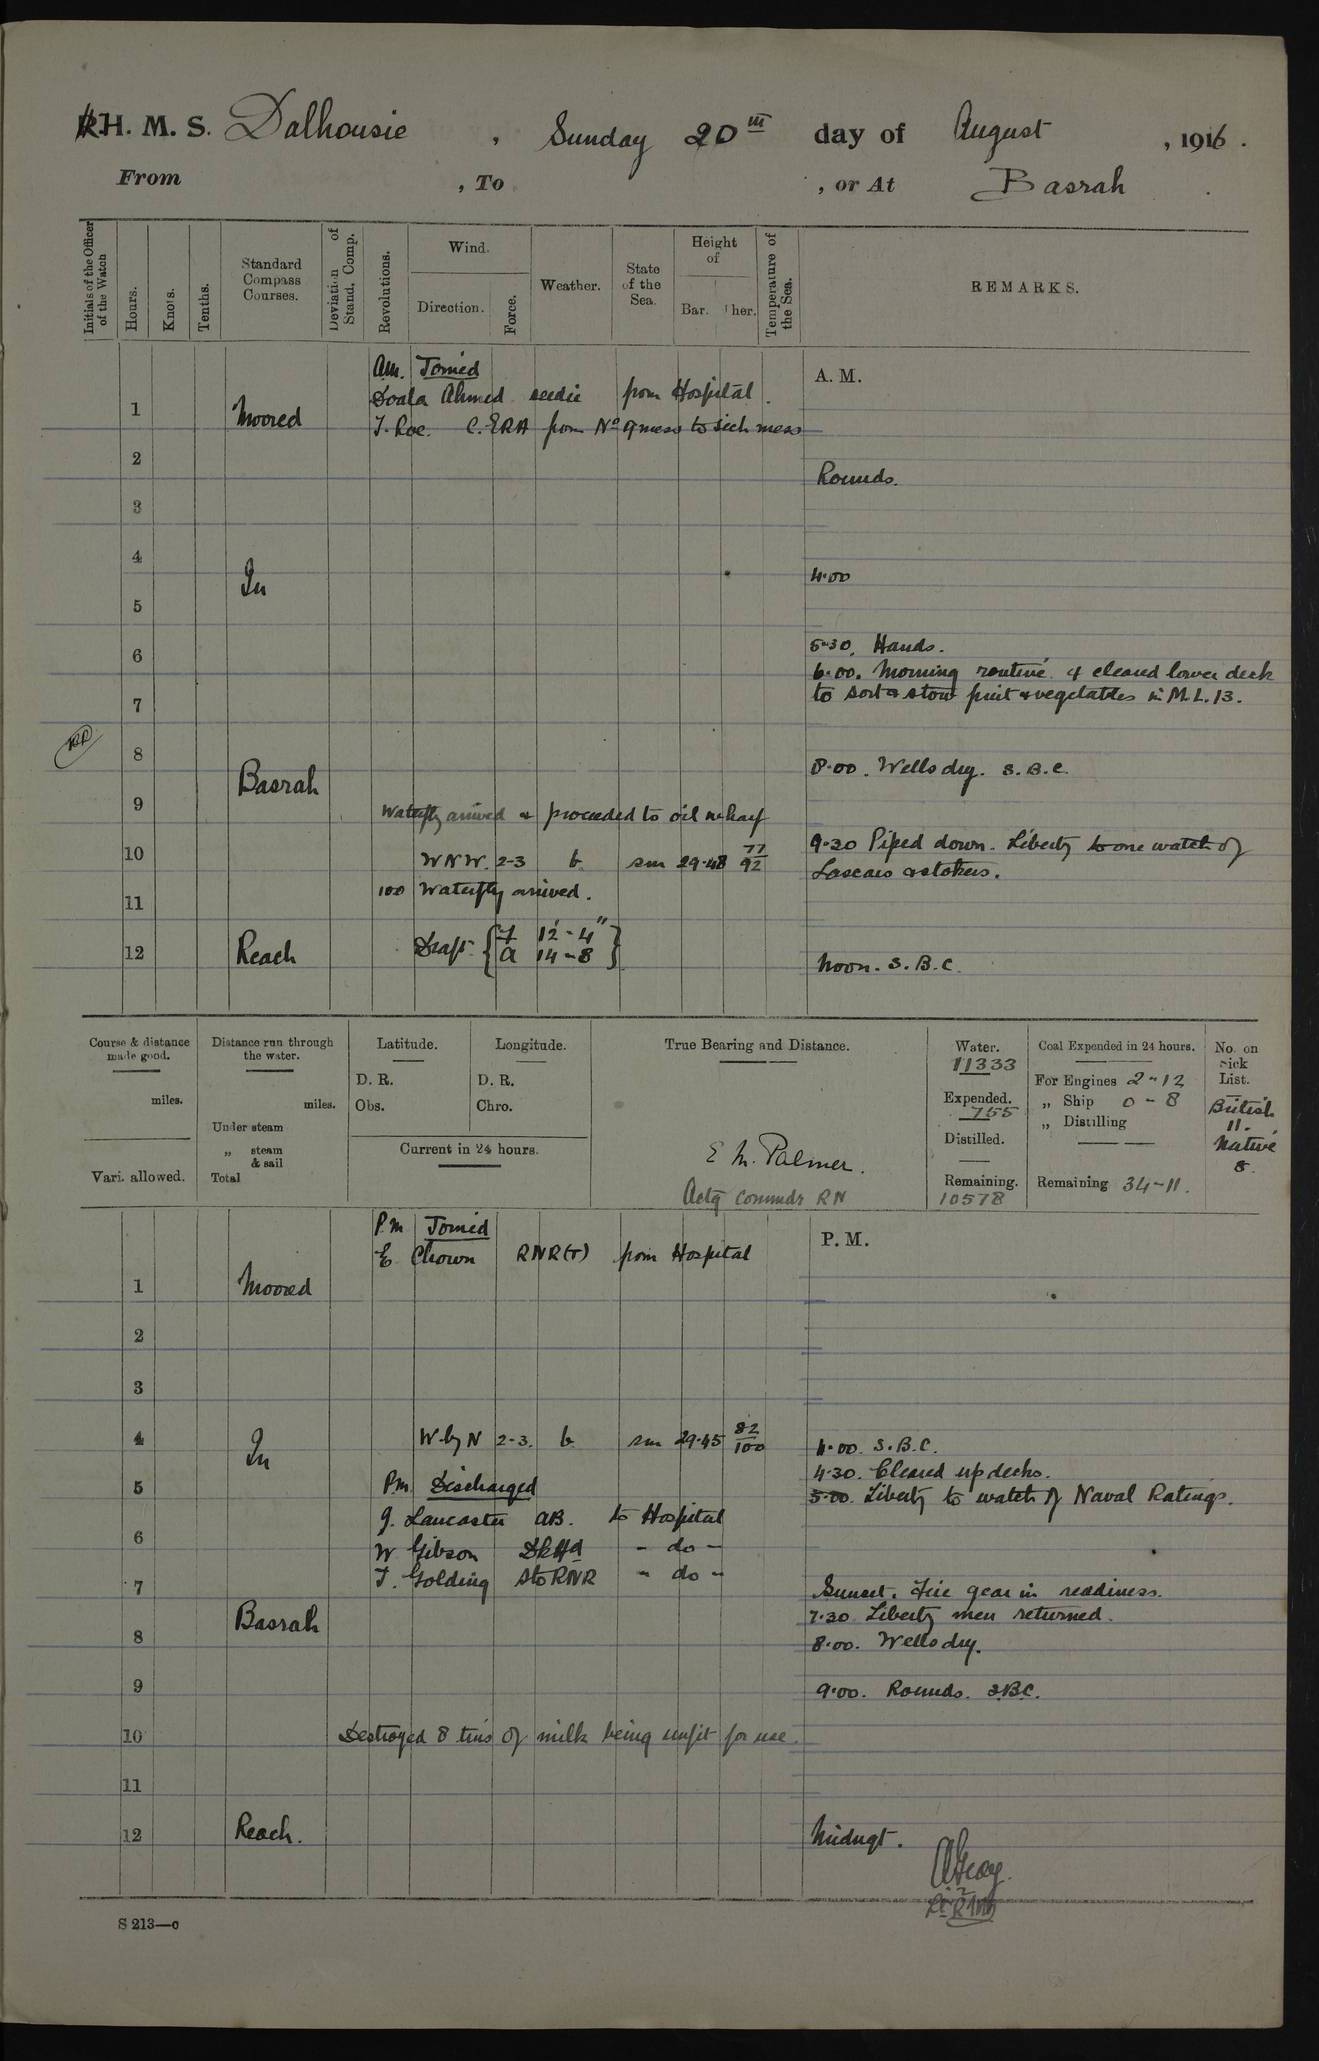 H. M. S. Dalhousie, Sunday 20th day of August, 1916.
From , To , or At Basrah.
Initials of the Officer of the Watch
Hours.
Knots.
Tenths.
Standard Compass Courses.
Deviation of Stand. Comp.
Revolutions.
Wind.
Direction.
Force.
Weather.
State of the Sea.
Height of
Bar. Ther.
Temperature of the Sea.
REMARKS.
A. M.
Am. Joined
Ahmed seedie from Hospital.
1 Moored
J. Roe. C. ERA from No 9 mess to sick mess
2
Rounds.
3
4
In
4.00
5
5.30. Hands.
6
6.00. Morning routine & cleared lower deck
to sort & stow fruit & vegetables in M.L. 13.
7
8
8.00. Wells dry. S.B.C.
Basrah
9
Waterfly arrived & proceeded to oil wharf
9.30 Piped down. Liberty to one watch of
10 WNW. 2-3 b sm 29.48 77/92
Lascars & stokers.
11 100 Waterfly arrived.
Draft { F 12'-4"
A 14-8 }
12 Reach
Noon. S.B.C.
Course & distance made good.
miles.
Vari. allowed.
Distance run through the water.
miles.
Under steam
„ steam & sail
Total
Latitude.
D. R.
Obs.
Longitude.
D. R.
Chro.
Current in 24 hours.
True Bearing and Distance.
E M. Palmer.
Actg Commdr RN
Water.
11333
Expended.
755
Distilled.
Remaining.
10578
Coal Expended in 24 hours.
For Engines 2-12
„ Ship 0-8
„ Distilling
Remaining 34-11.
No. on Sick List.
British
11.
Native
8.
P. M.
P.m Joined
E Chown RNR(T) from Hospital
1 Moored
2
3
4 W by N 2-3. b sm 29.45 82/100
4.00. S.B.C.
In
4.30. Cleared up decks.
5 Pm Discharged
5.00. Liberty to watch of Naval Ratings.
J. Lancaster AB. to Hospital
6
W Gibson DkHd - do -
J. Golding Sto RNR - do -
7
Sunset. Fire gear in readiness.
Basrah
7.30 Liberty men returned.
8
8.00. Wells dry.
9
9.00. Rounds. S.B.C.
10 Destroyed 8 tins of milk being unfit for use.
11
12 Reach.
Midngt.
S 213—c